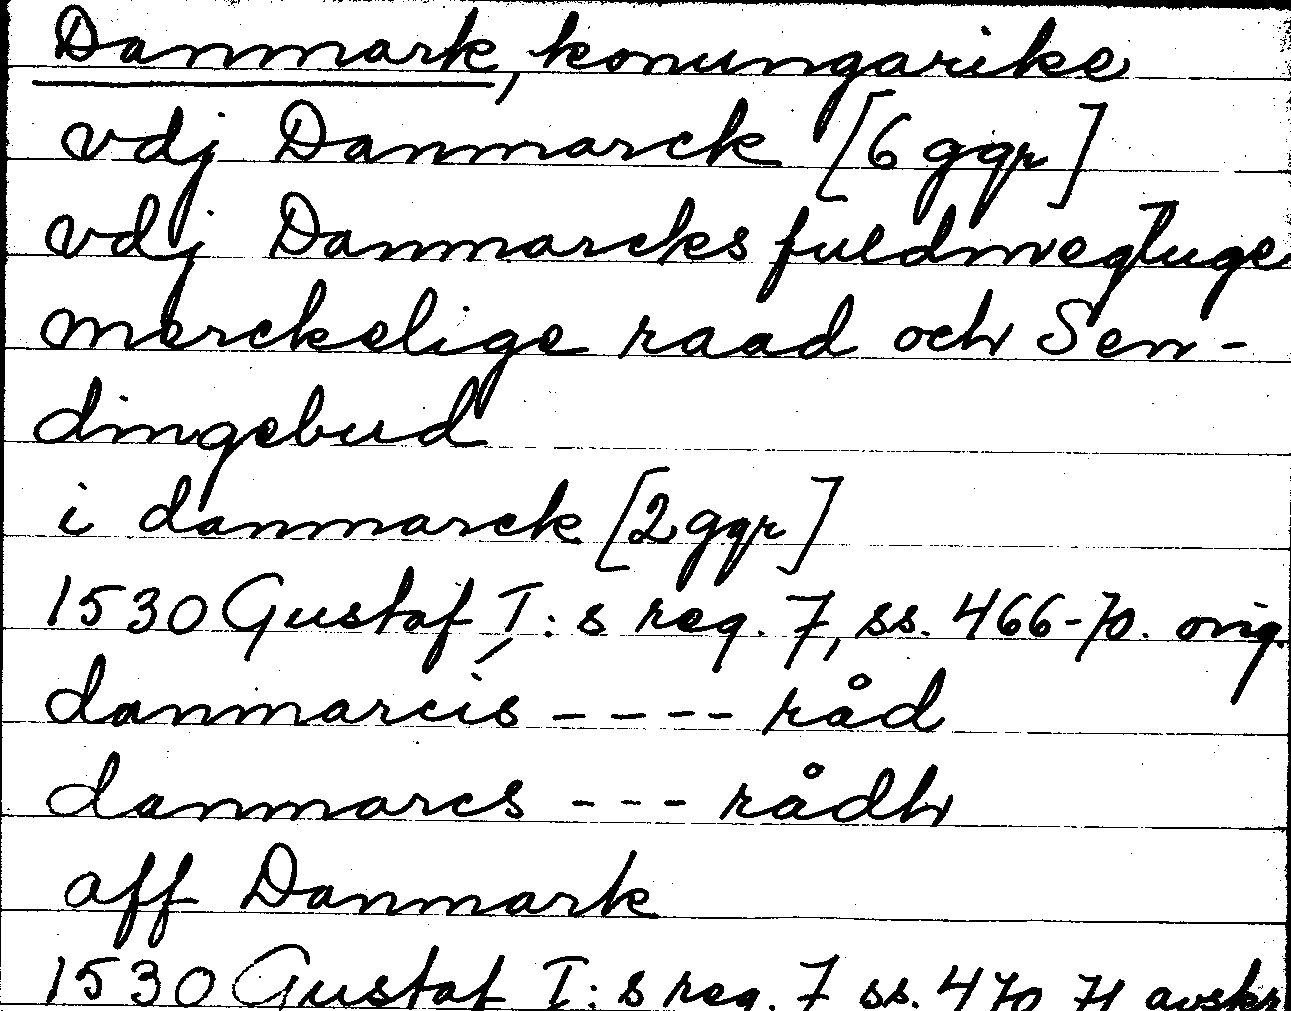 Danmark, konungarike
vdj Danmarck [6 ggr]
vdj Danmarcks fuldmegtuge
merckelige raad och Sen-
dingebud
i danmarck [2 ggr]
1530 Gustaf I:s reg. 7, ss. 466-70. orig.
danmarcis ---- råd
danmarcs --- rådh
aff Danmark
1530 Gustaf I:s reg. 7 ss. 470 71 avskr